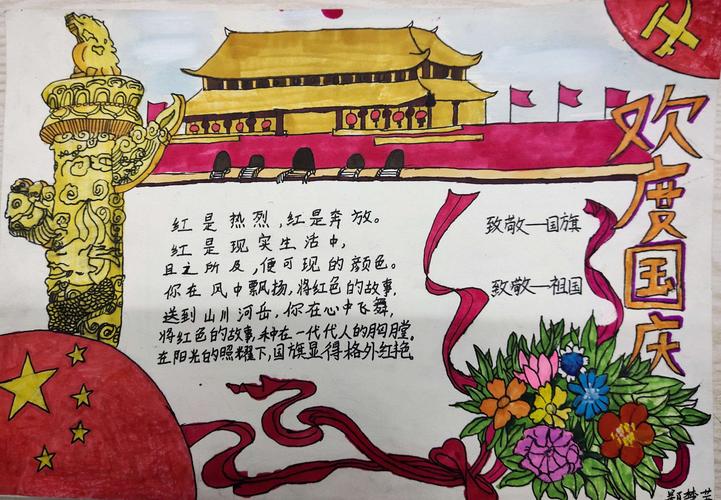 欢度国庆
红是热烈,红是奔放。
红是现实生活中,
且之所及,便可现的颜色。
你在风中飘扬,将红色的故事,
送到山川河岳,你在心中飞舞,
将红色的故事,种在一代代人的胸膛。
在阳光的照耀下,国旗显得格外红艳。
致敬—国旗
致敬—祖国